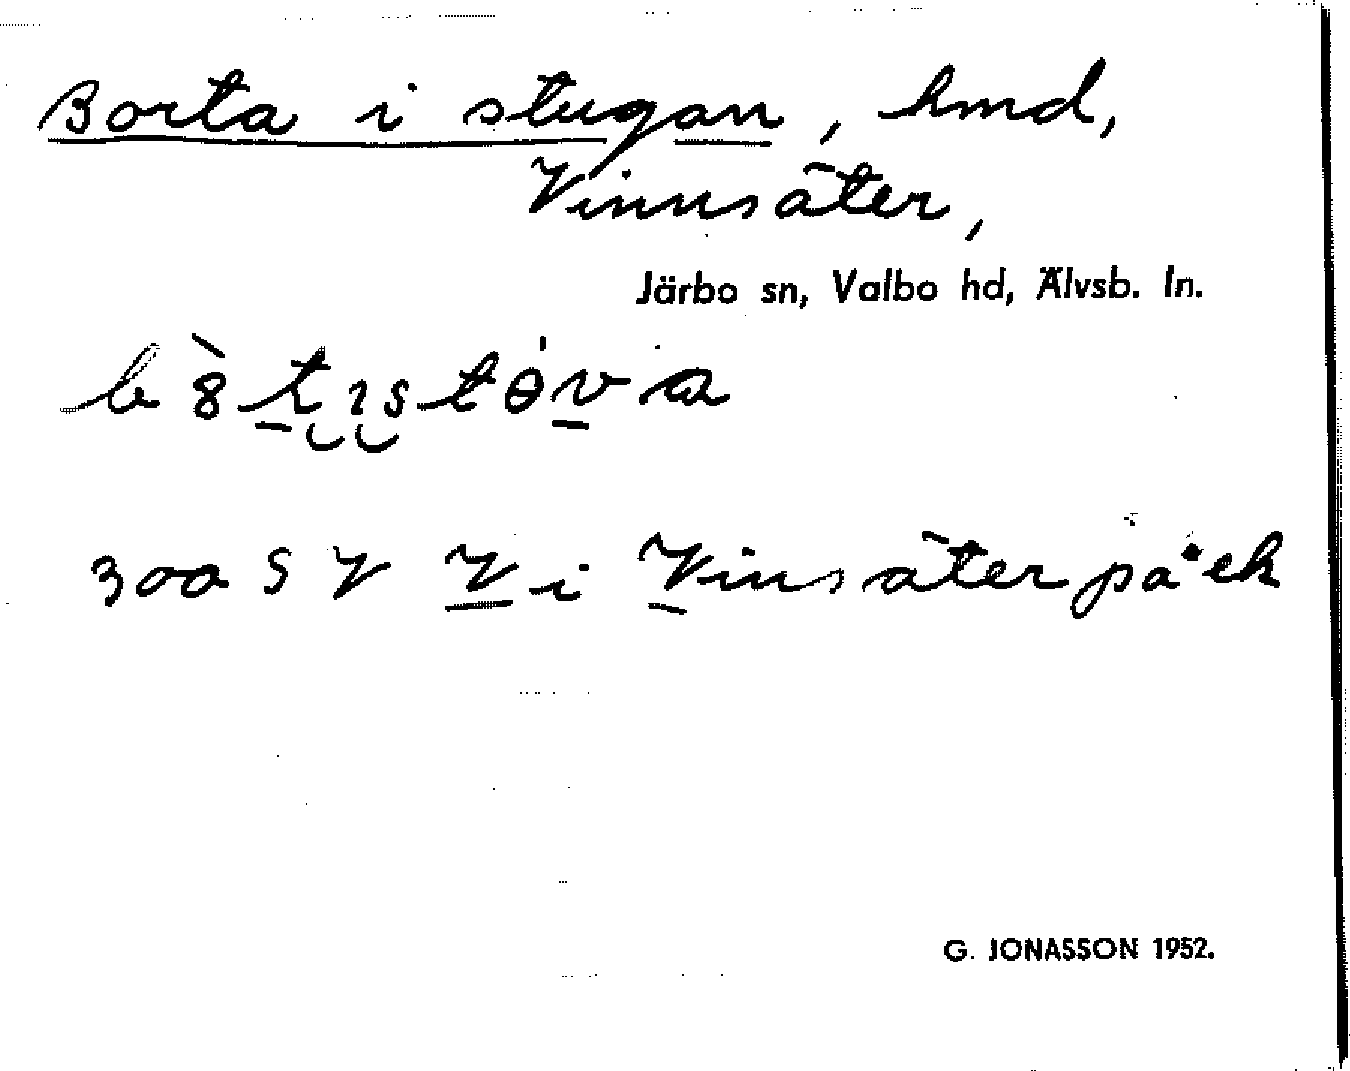 Borta i stugan, hmd,
Vinnsäter,
Järbo sn, Valbo hd, Älvsb. ln.
300 S V V i Vinsäter på ek
G. JONASSON 1952.